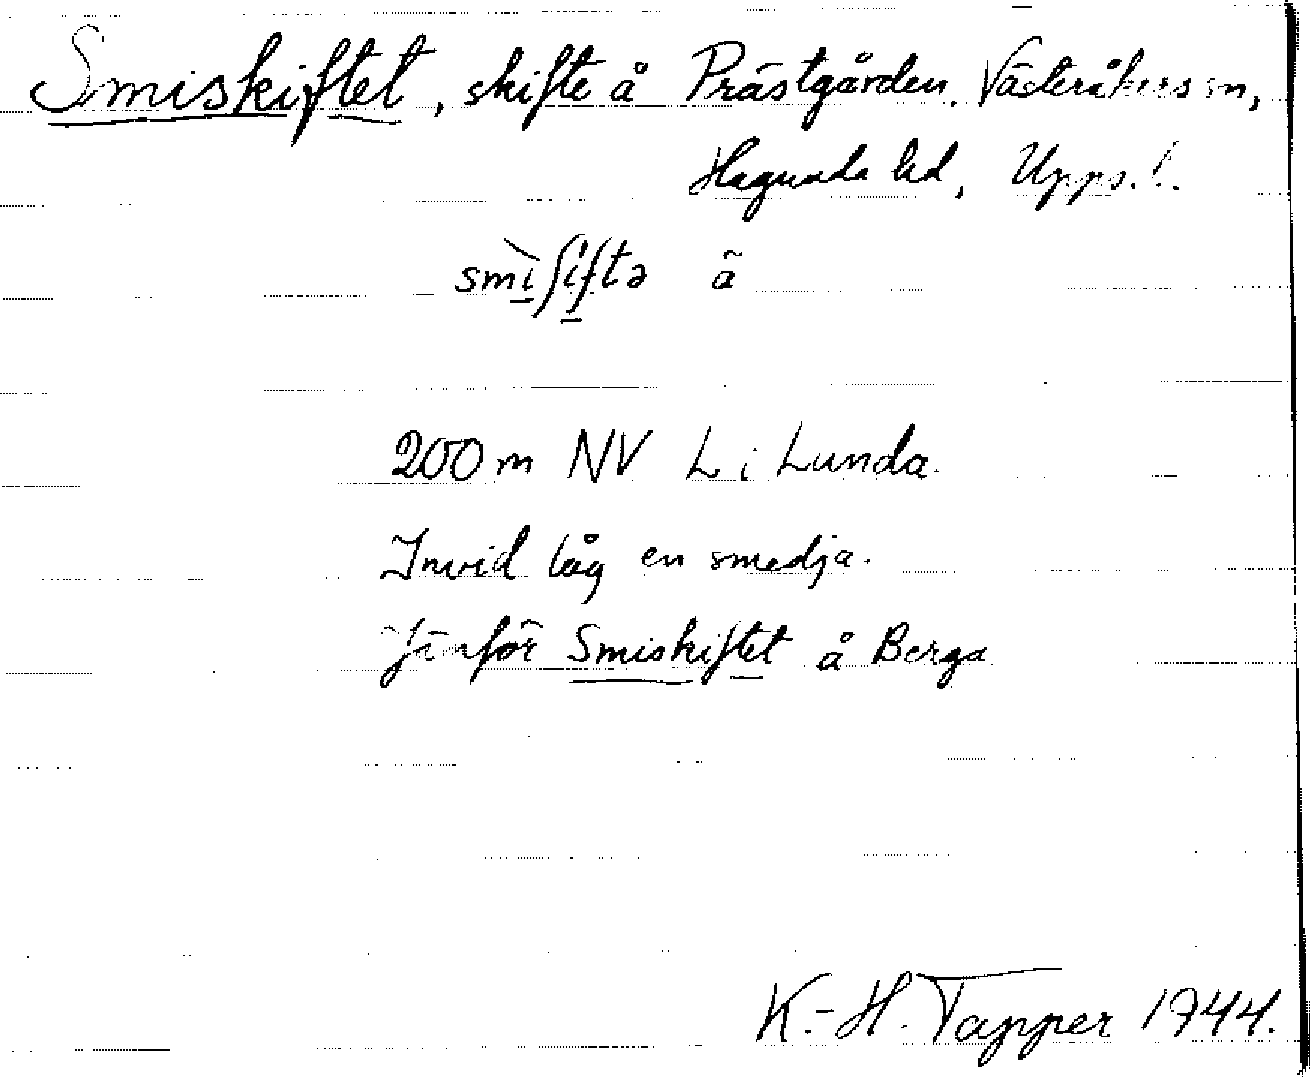 Smiskiftet, skifte å Prästgården, Västeråkers sn,
Hagunda hd, Upps.l.
smìʃiftə ã
200 m NV L i Lunda.
Invid låg en smedja.
Jämför Smiskiftet å Berga
K.-H. Tapper 1944.